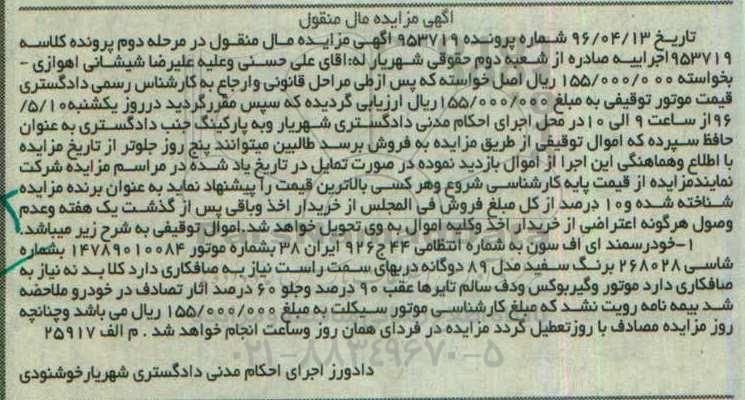 آگهی مزایده مال منقول
تاریخ ۹۶/۰۴/۱۳ شماره پرونده ۹۵۳۷۱۹ آگهی مزایده مال منقول در مرحله دوم پرونده کلاسه
۹۵۳۷۱۹اجراییه صادره از شعبه دوم حقوقی شهریار له:اقای علی حسنی وعلیه علیرضا شیشانی اهوازی -
بخواسته ۱۵۵/۰۰۰/۰۰۰ ریال اصل خواسته که پس ازطی مراحل قانونی وارجاع به کارشناس رسمی دادگستری
قیمت موتور توقیفی به مبلغ ۱۵۵/۰۰۰/۰۰۰ریال ارزیابی گردیده که سپس مقررگردید درروز یکشنبه۵/۱۰/
۹۶از ساعت ۹ الی ۱۰در محل اجرای احکام مدنی دادگستری شهریار وبه پارکینگ جنب دادگستری به عنوان
حافظ سپرده که اموال توقیفی از طریق مزایده به فروش برسد طالبین میتوانند پنج روز جلوتر از تاریخ مزایده
با اطلاع وهماهنگی این اجرا از اموال بازدید نموده در صورت تمایل در تاریخ یاد شده در مراسم مزایده شرکت
نمایندمزایده از قیمت پایه کارشناسی شروع وهر کسی بالاترین قیمت را پیشنهاد نماید به عنوان برنده مزایده
شناخته شده و۱۰ درصد از کل مبلغ فروش فی المجلس از خریدار اخذ وباقی پس از گذشت یک هفته وعدم
وصول هرگونه اعتراضی از خریدار اخذ وکلیه اموال به وی تحویل خواهد شد.اموال توقیفی به شرح زیر میباشد.
۱-خودرسمند ای اف سون به شماره انتظامی ۴۴ ج۹۲۶ ایران ۳۸ بشماره موتور ۱۴۷۸۹۰۱۰۰۸۴ بشماره
شاسی ۲۶۸۰۲۸ برنگ سفید مدل ۸۹ دوگانه دربهای سمت راست نیاز به صافکاری دارد کلا بد نه نیاز به
صافکاری دارد موتور وگیربوکس ودف سالم تایرها عقب ۹۰ درصد وجلو ۶۰ درصد اثار تصادف در خودرو ملاحضه
شد بیمه نامه رویت نشد که مبلغ کارشناسی موتور سیکلت به مبلغ ۱۵۵/۰۰۰/۰۰۰ ریال می باشد وچنانچه
روز مزایده مصادف با روزتعطیل گردد مزایده در فردای همان روز وساعت انجام خواهد شد . م الف ۲۵۹۱۷
دادورز اجرای احکام مدنی دادگستری شهریارخوشنودی
۰۲۱-۸۸۳۴۹۶۷۰-۵